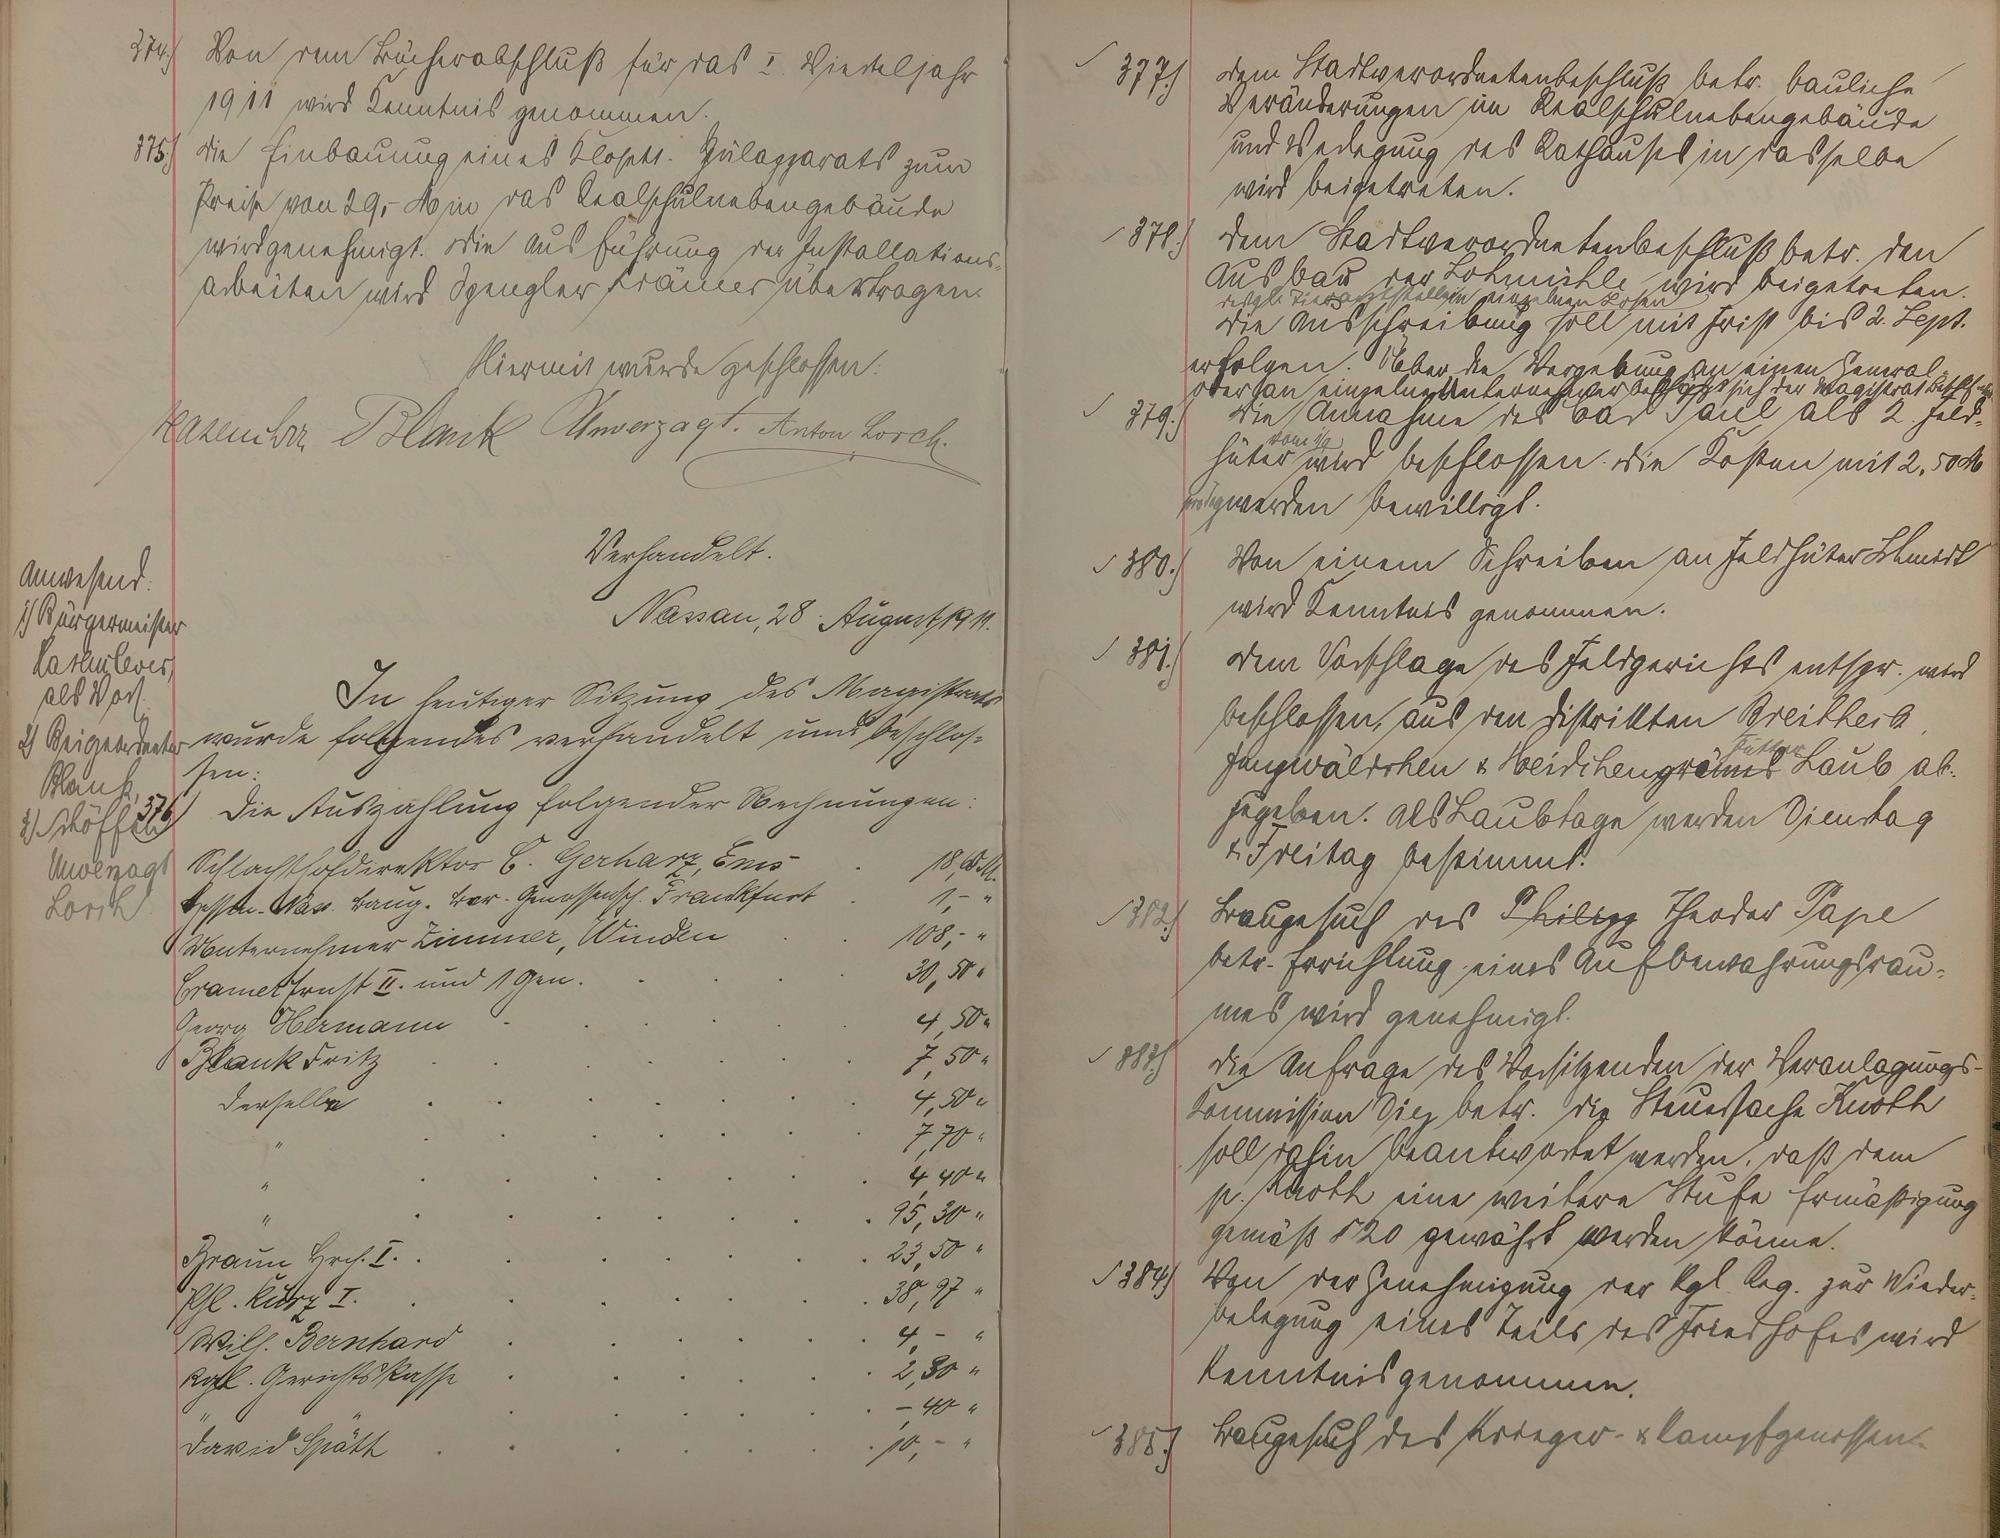 374.) Von dem Bücherabschluß für das I. Vierteljahr
1911 wird Kenntnis genommen.
375.) Die Einbauung eines Closett-Spülapparats zum
Preise von 29,- M in das Realschulnebengebäude
wird genehmigt. Die Ausführung der Installations-
arbeiten wird Spengler Krämer übertragen.
Hiermit wurde geschlossen:
Hasenclever Blank Unverzagt. Anton Lorch.
Verhandelt.
Nassau, 28. August 1911.
Anwesend:
1) Bürgermeister
Hasenclever,
als Vors.
2) Beigeordneter
Blank,
3) Schöffen
Unverzagt
Lorch
In heutiger Sitzung des Magistrats
wurde folgendes verhandelt und beschlos-
sen:
376) Die Auszahlung folgender Rechnungen:
Schlachthofdirektor C. Gerharz, Ems . 18,60 M.
Hessen-Nass. Baug. Ber. Genossensch. Frankfurt . 1,- "
Unternehmer Zimmer, Winden . . 108,- "
Cramer Ernst II. und 1 Gen. . . . . 30,50 "
Georg Hermann . . . . . 4,50 "
Blank Fritz . . . . . . 7,50 "
Derselbe . . . . . . 4,50 "
" . . . . . . 7,70 "
" . . . . . . 4,40 "
" . . . . . . 95,30 "
Braun Hrch. I. . . . . . . 23,50 "
Phl. Kurz I. . . . . . . 38,97 "
Wilh. Bernhard . . . . . . 4,- "
Kgl. Gerichtskasse . . . . . . 2,30 "
" " . . . . . . -,40 "
David Späth . . . . . . 10,- "
377.) Dem Stadtverordnetenbeschluß betr. bauliche
Veränderungen im Realschulnebengebäude
und Verlegung des Rathauses in dasselbe
wird beigetreten.
378.) Dem Stadtverordnetenbeschluß betr. den
Ausbau der Lohmühle wird beigetreten.
einzelnen Losen
Die Ausschreibung soll mit Frist bis 2. Sept.
erfolgen. Über die Vergebung an einen General-
oder an einzelne Unternehmer sich der Magistrat
379.) Die Annahme des Paul als 2. Feld-
vom 1/9
hüter wird beschlossen. Die Kosten mit 2,50 M
pro Tag werden bewilligt.
380.) Von einem Schreiben an Feldhüter Schmidt
wird Kenntnis genommen.
381.) Dem Vorschlage des Feldgerichts entspr. wird
beschlossen, aus den Distrikten Breitheck,
Futter
Jungwäldchen & Heidchen grünes Laub ab-
gegeben. Als Laubtage werden Dienstag
& Freitag bestimmt.
382.) Baugesuch des Philipp Theodor Pape
betr. Errichtung eines Aufbewahrungsrau-
mes wird genehmigt.
383.) Die Anfrage des Vorsitzenden der Veranlagungs-
Kommission Diez betr. die Steuersache Knoth
soll dahin beantwortet werden, daß dem
p. Knoth eine weitere Stufe Ermäßigung
gemäß § 20 gewährt werden könne.
384) Von der Genehmigung der Kgl. Reg. zur Wieder-
belegung eines Teils des Friedhofes wird
Kenntnis genommen.
385.) Baugesuch des Krieger- & Kampfgenossen-